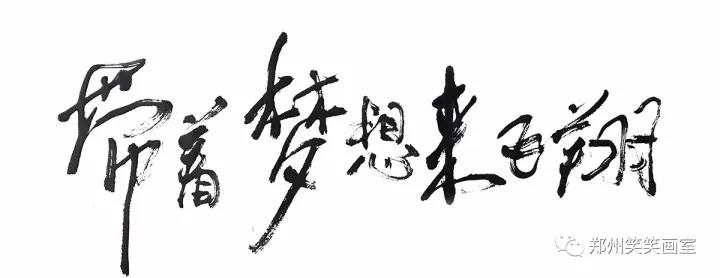 带着梦想来飞翔
郑州笑笑画室